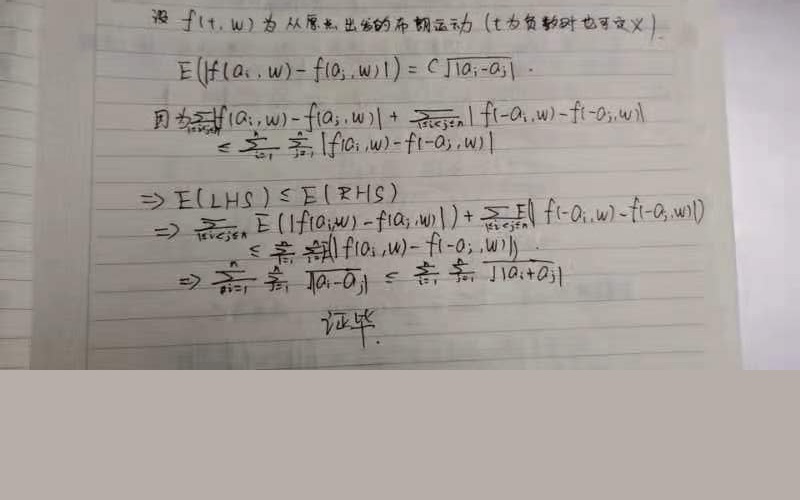 设 f(t, w) 为从原点出发的布朗运动 (t为负数时也可定义).
E(|f(a_i, w) - f(a_j, w)|) = C√|a_i - a_j| .
因为 ∑_{1≤i<j≤n} |f(a_i, w) - f(a_j, w)| + ∑_{1≤i<j≤n} |f(-a_i, w) - f(-a_j, w)|
≤ ∑_{i=1}^{n} ∑_{j=1}^{n} |f(a_i, w) - f(-a_j, w)|
⇒ E(LHS) ≤ E(RHS)
⇒ ∑_{1≤i<j≤n} E(|f(a_i, w) - f(a_j, w)|) + ∑_{1≤i<j≤n} E(|f(-a_i, w) - f(-a_j, w)|)
≤ ∑_{i=1}^{n} ∑_{j=1}^{n} E(|f(a_i, w) - f(-a_j, w)|) .
⇒ ∑_{i=1}^{n} ∑_{j=1}^{n} √|a_i - a_j| ≤ ∑_{i=1}^{n} ∑_{j=1}^{n} √|a_i + a_j|
证毕.